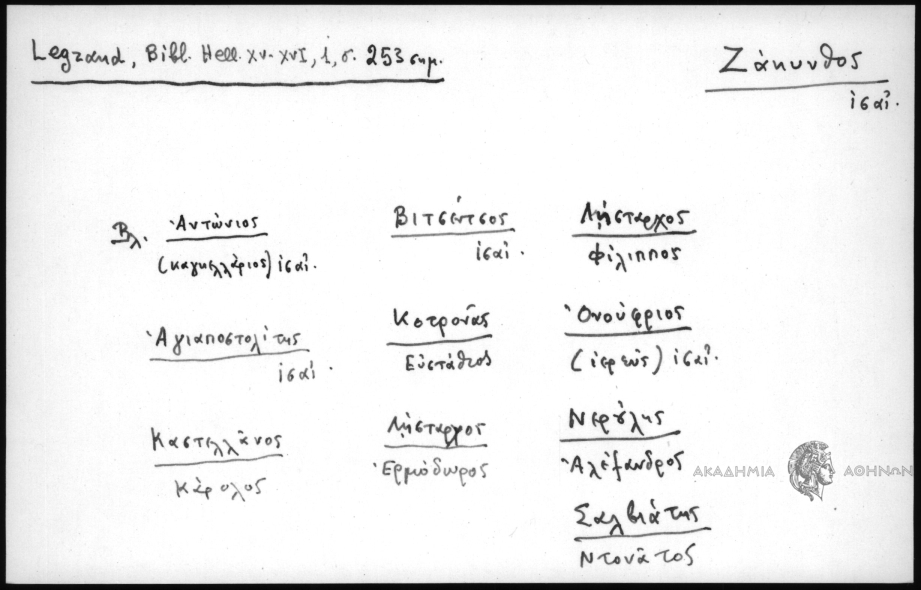 Legrand, Bibl. Hell. XV-XVI, 1, σ. 253 σημ.
Ζάκυνθος
ις αἰ.
Βλ. Ἀντώνιος
(καγκελλάριος) ις αἰ.
Ἁγιαποστολίτης
ις αἰ.
Καστελλᾶνος
Κάρολος
Βιτσέντσος
ις αἰ.
Κοτρονᾶς
Εὐστάθιος
Λῄσταρχος
Ἑρμόδωρος
Λῄσταρχος
Φίλιππος
Ὀνούφριος
(ἱερεὺς) ις αἰ.
Νερούλης
Ἀλέξανδρος
Σαλβιάτης
Ντονᾶτος
ΑΚΑΔΗΜΙΑ ΑΘΗΝΩΝ